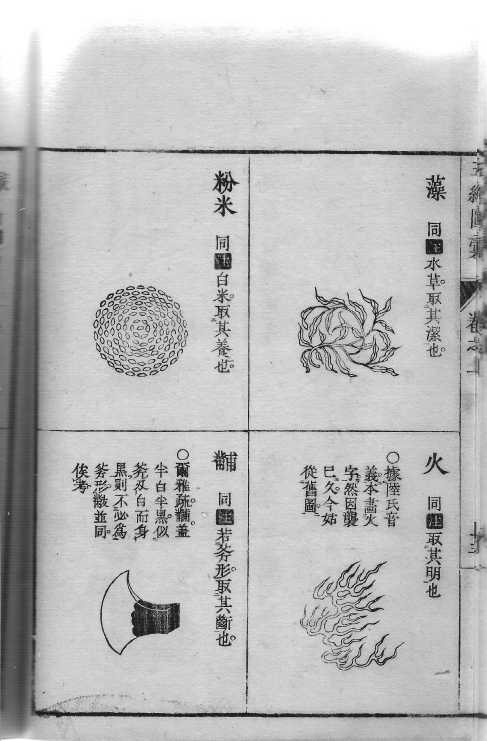 五經圖彙
卷之
藻
同注水草取其潔也
火
同注取其明也
○據陸氏音
義本畫火
字然因襲
已久今姑
從舊圖
粉米
同注白米取其養也
黼
同注若斧形取其斷也
○爾雅疏黼蓋
半白半黑似
斧刃白而身
黑則不必爲
斧形歟並同
俟考